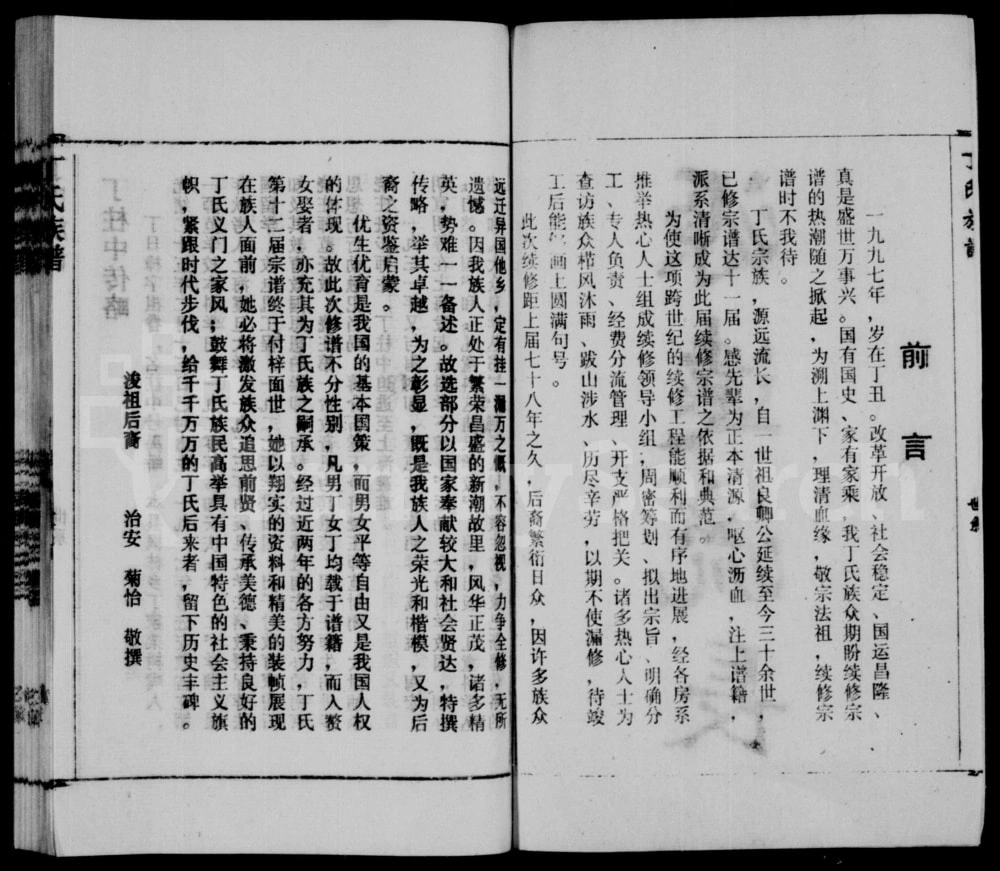 前言
一九九七年，岁在丁丑。改革开放、社会稳定、国运昌隆、
真是盛世万事兴。国有国史、家有家乘，我丁氏族众期盼续修宗
谱的热潮随之掀起，为溯上渊下，理清血缘，敬宗法祖，续修宗
谱时不我待。
丁氏宗族，源远流长，自一世祖良卿公延续至今三十余世，
已修宗谱达十一届。感先辈为正本清源，呕心沥血，注上谱籍，
派系清晰成为此届续修宗谱之依据和典范。
为使这项跨世纪的续修工程能顺利而有序地进展，经各房系
推举热心人士组成续修领导小组，周密筹划、拟出宗旨、明确分
工、专人负责、经费分流管理、开支严格把关。诸多热心人士为
查访族众栉风沐雨、跋山涉水、历尽辛劳，以期不使漏修，待竣
工后能画上圆满句号。
此次续修距上届七十八年之久，后裔繁衍日众，因许多族众
远迁异国他乡，定有挂一漏万之慨，不容忽视，力争全修，无所
遗憾。因我族人正处于繁荣昌盛的新潮故里，风华正茂，诸多精
英，势难一一备述。故选部分以国家奉献较大和社会贤达，特撰
传略，举其卓越，为之彰显，既是我族人之荣光和楷模，又为后
裔之资鉴启蒙。
优生优育是我国的基本国策，而男女平等自由又是我国人权
的体现。故此次修谱不分性别，凡男丁女丁均载于谱籍，而入赘
女娶者，亦充其为丁氏族之嗣承。经过近两年的各方努力，丁氏
第十二届宗谱终于付梓面世，她以翔实的资料和精美的装帧展现
在族人面前，她必将激发族众追思前贤、传承美德、秉持良好的
丁氏义门之家风；鼓舞丁氏族民高举具有中国特色的社会主义旗
帜，紧跟时代步伐，给千千万万的丁氏后来者，留下历史丰碑。
浚祖后裔 治安 菊怡 敬撰